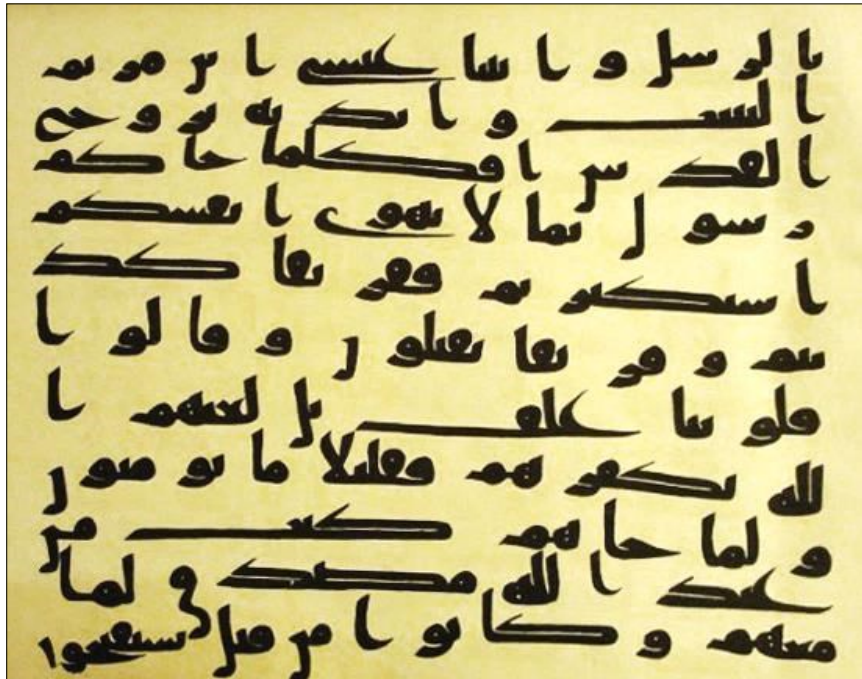 بالرسل و اتينا عيسى ابن مريم
البينت و ايدنه بروح
القدس افكلما جاكم
رسول بما لا تهوى انفسكم
استكبرتم ففريقا كذ
بتم و فريقا تقتلون و قالوا
قلوبنا غلف بل لعنهم ا
لله بكفرهم فقليلا ما يومنون
و لما جاهم كتب من
عند الله مصدق لما
معهم و كانوا من قبل يستفتحوا